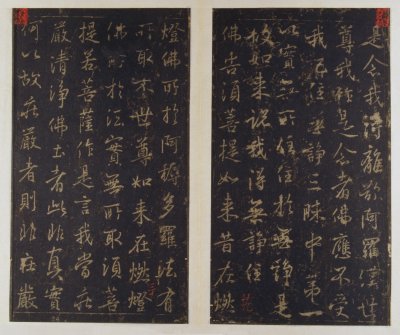 是念我得離欲阿羅漢世
尊我是念者佛應不受
我住無諍三昧中第一
以實無所住住於無諍是
故如來說我得無諍住
佛告須菩提如來昔在燃
燈佛所於阿耨多羅法有
所取不世尊如來在燃燈
佛所於法實無所取須菩
提若菩薩作是言我當莊
嚴清淨佛土者此非真實
何以故莊嚴者則非莊嚴